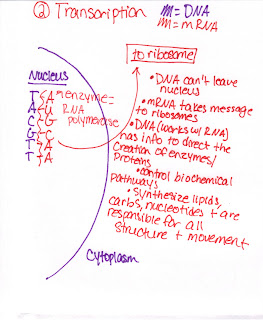 ② Transcription
M = DNA
M = mRNA
to ribosome
Nucleus
T A
A U
C G
G C
T A
T A
*enzyme=
RNA
polymerase
• DNA can't leave
nucleus
• mRNA takes message
to ribosomes
• DNA (works w/ RNA)
has info to direct the
creation of enzymes/
proteins
• control biochemical
pathways
• synthesize lipids,
carbs, nucleotides + are
responsible for all
structure + movement
Cytoplasm